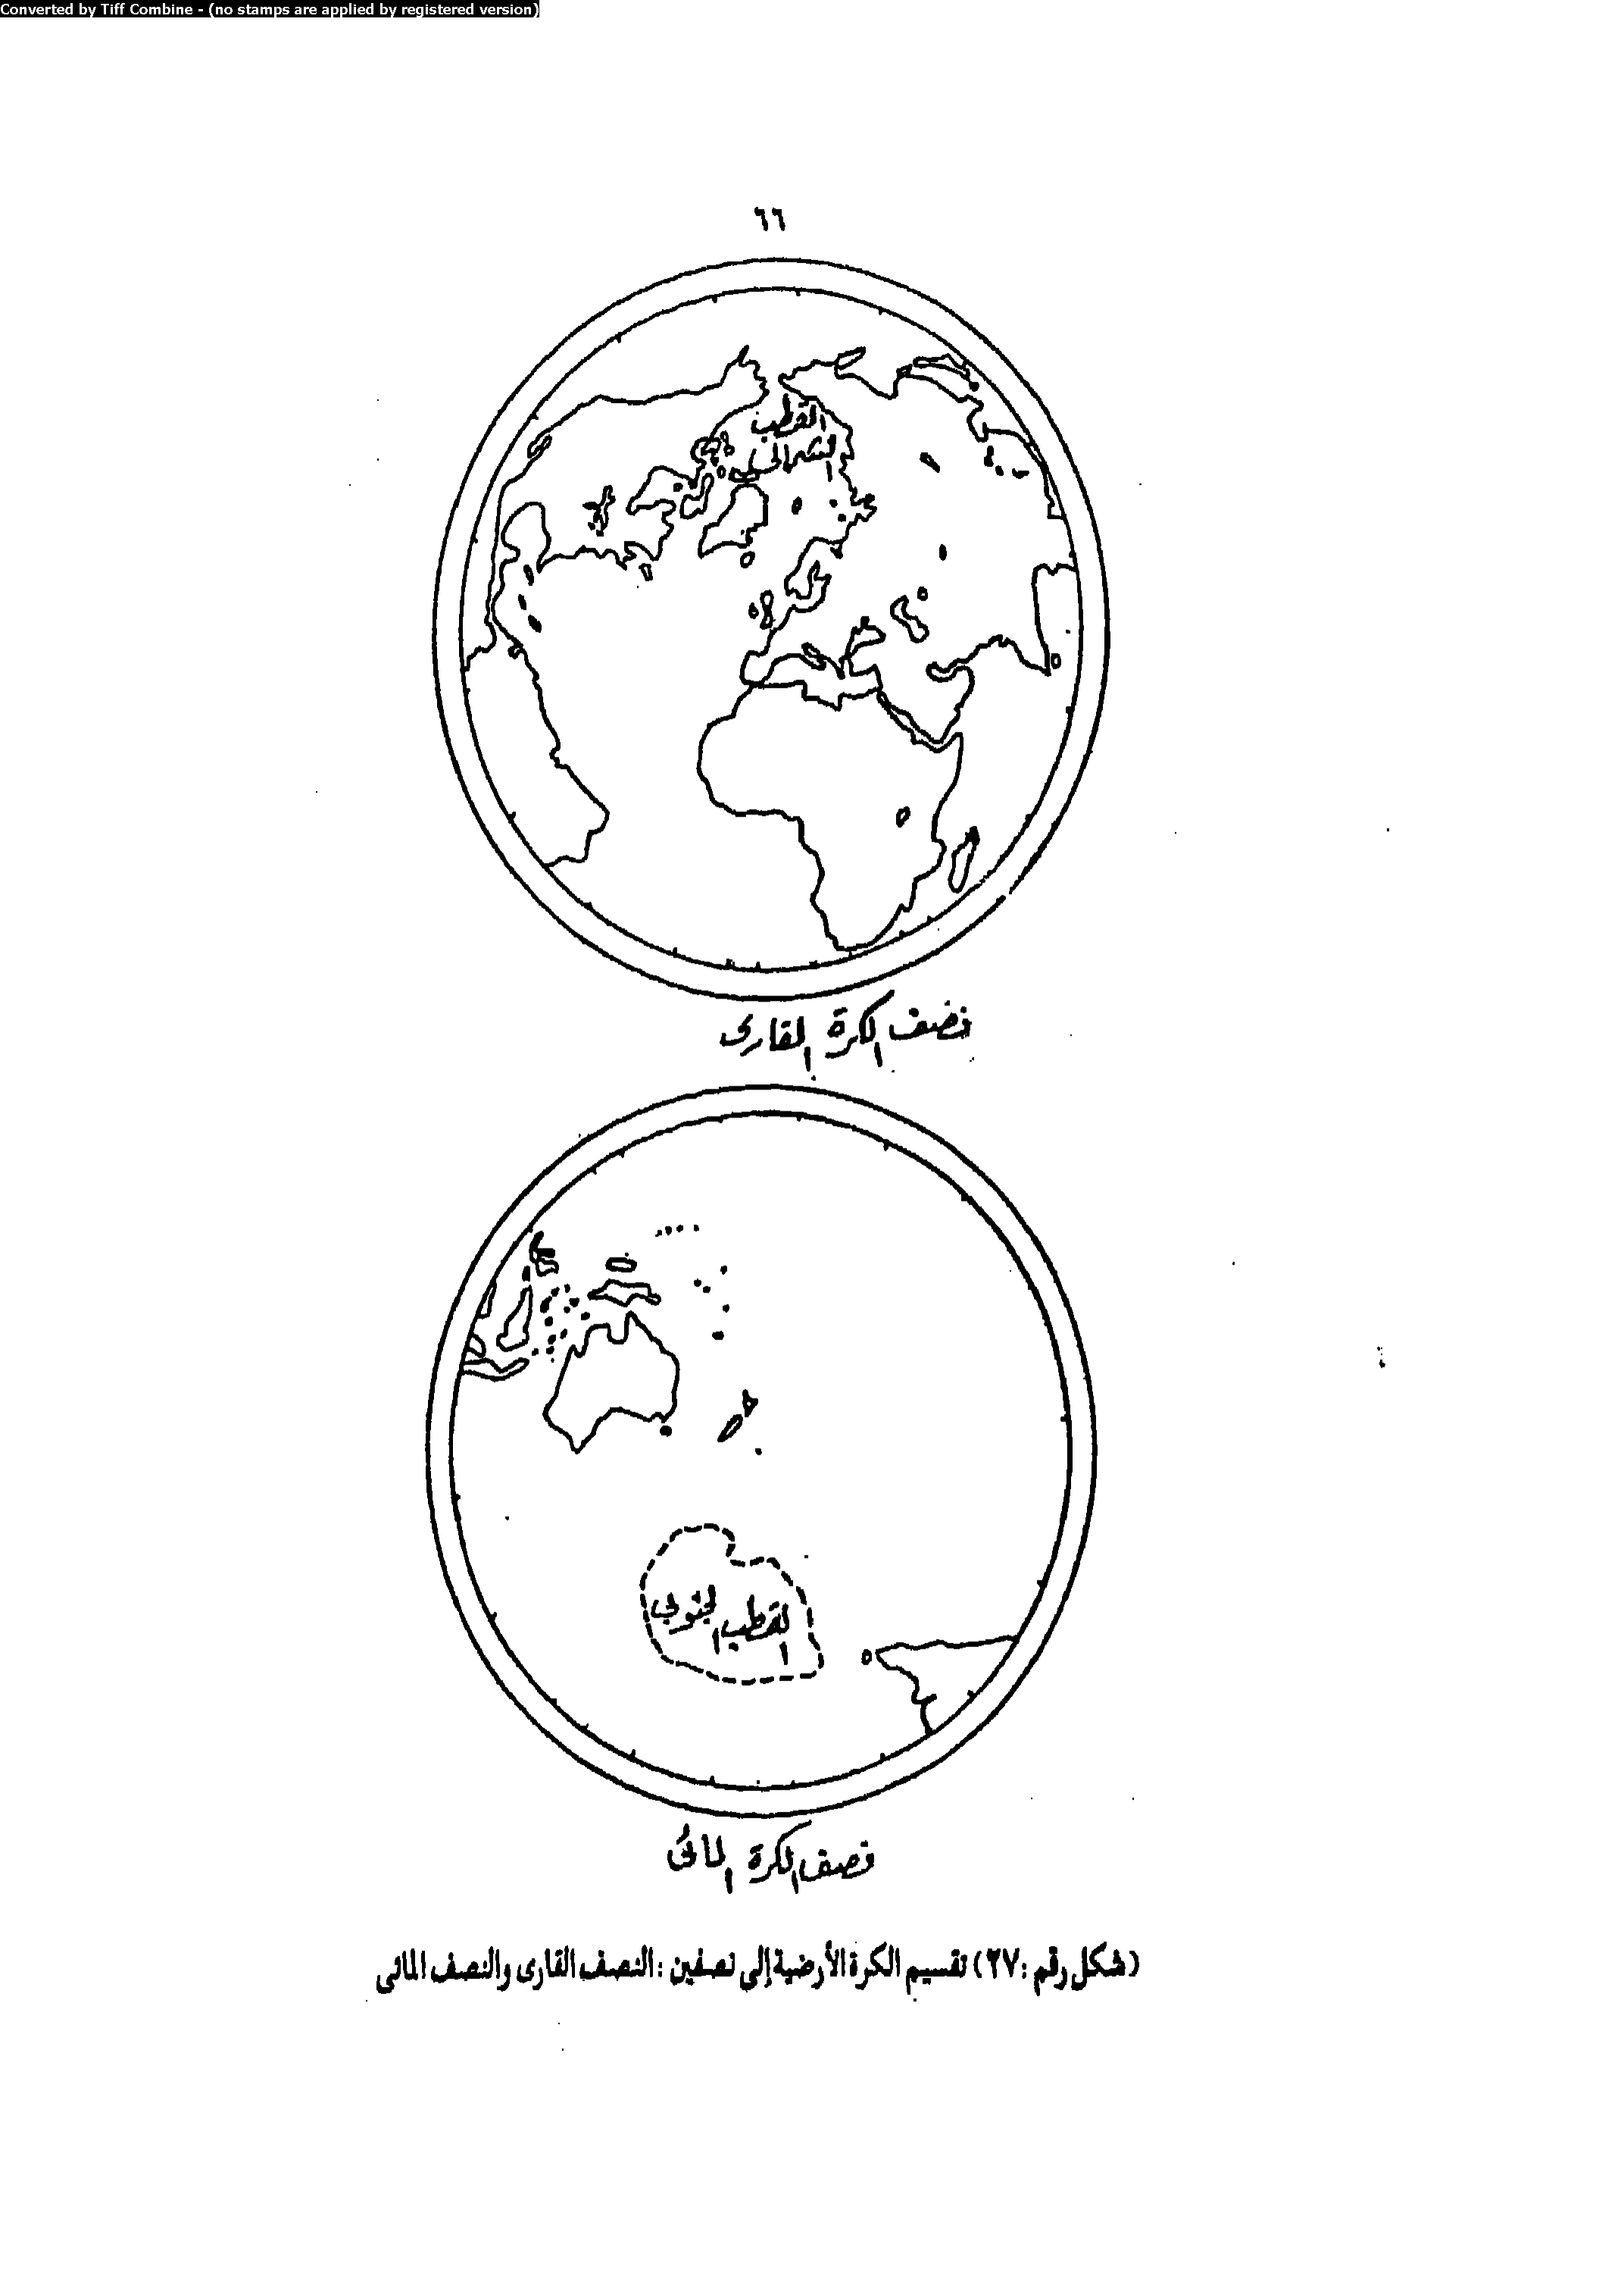 Converted by Tiff Combine - (no stamps are applied by registered version)
٦٦
القطب
الشمالى
نصف الكرة القارى
القطب الجنوبى
نصف الكرة المائى
(شكل رقم :٢٧) تقسيم الكرة الأرضية إلى نصفين : النصف القارى والنصف المائى